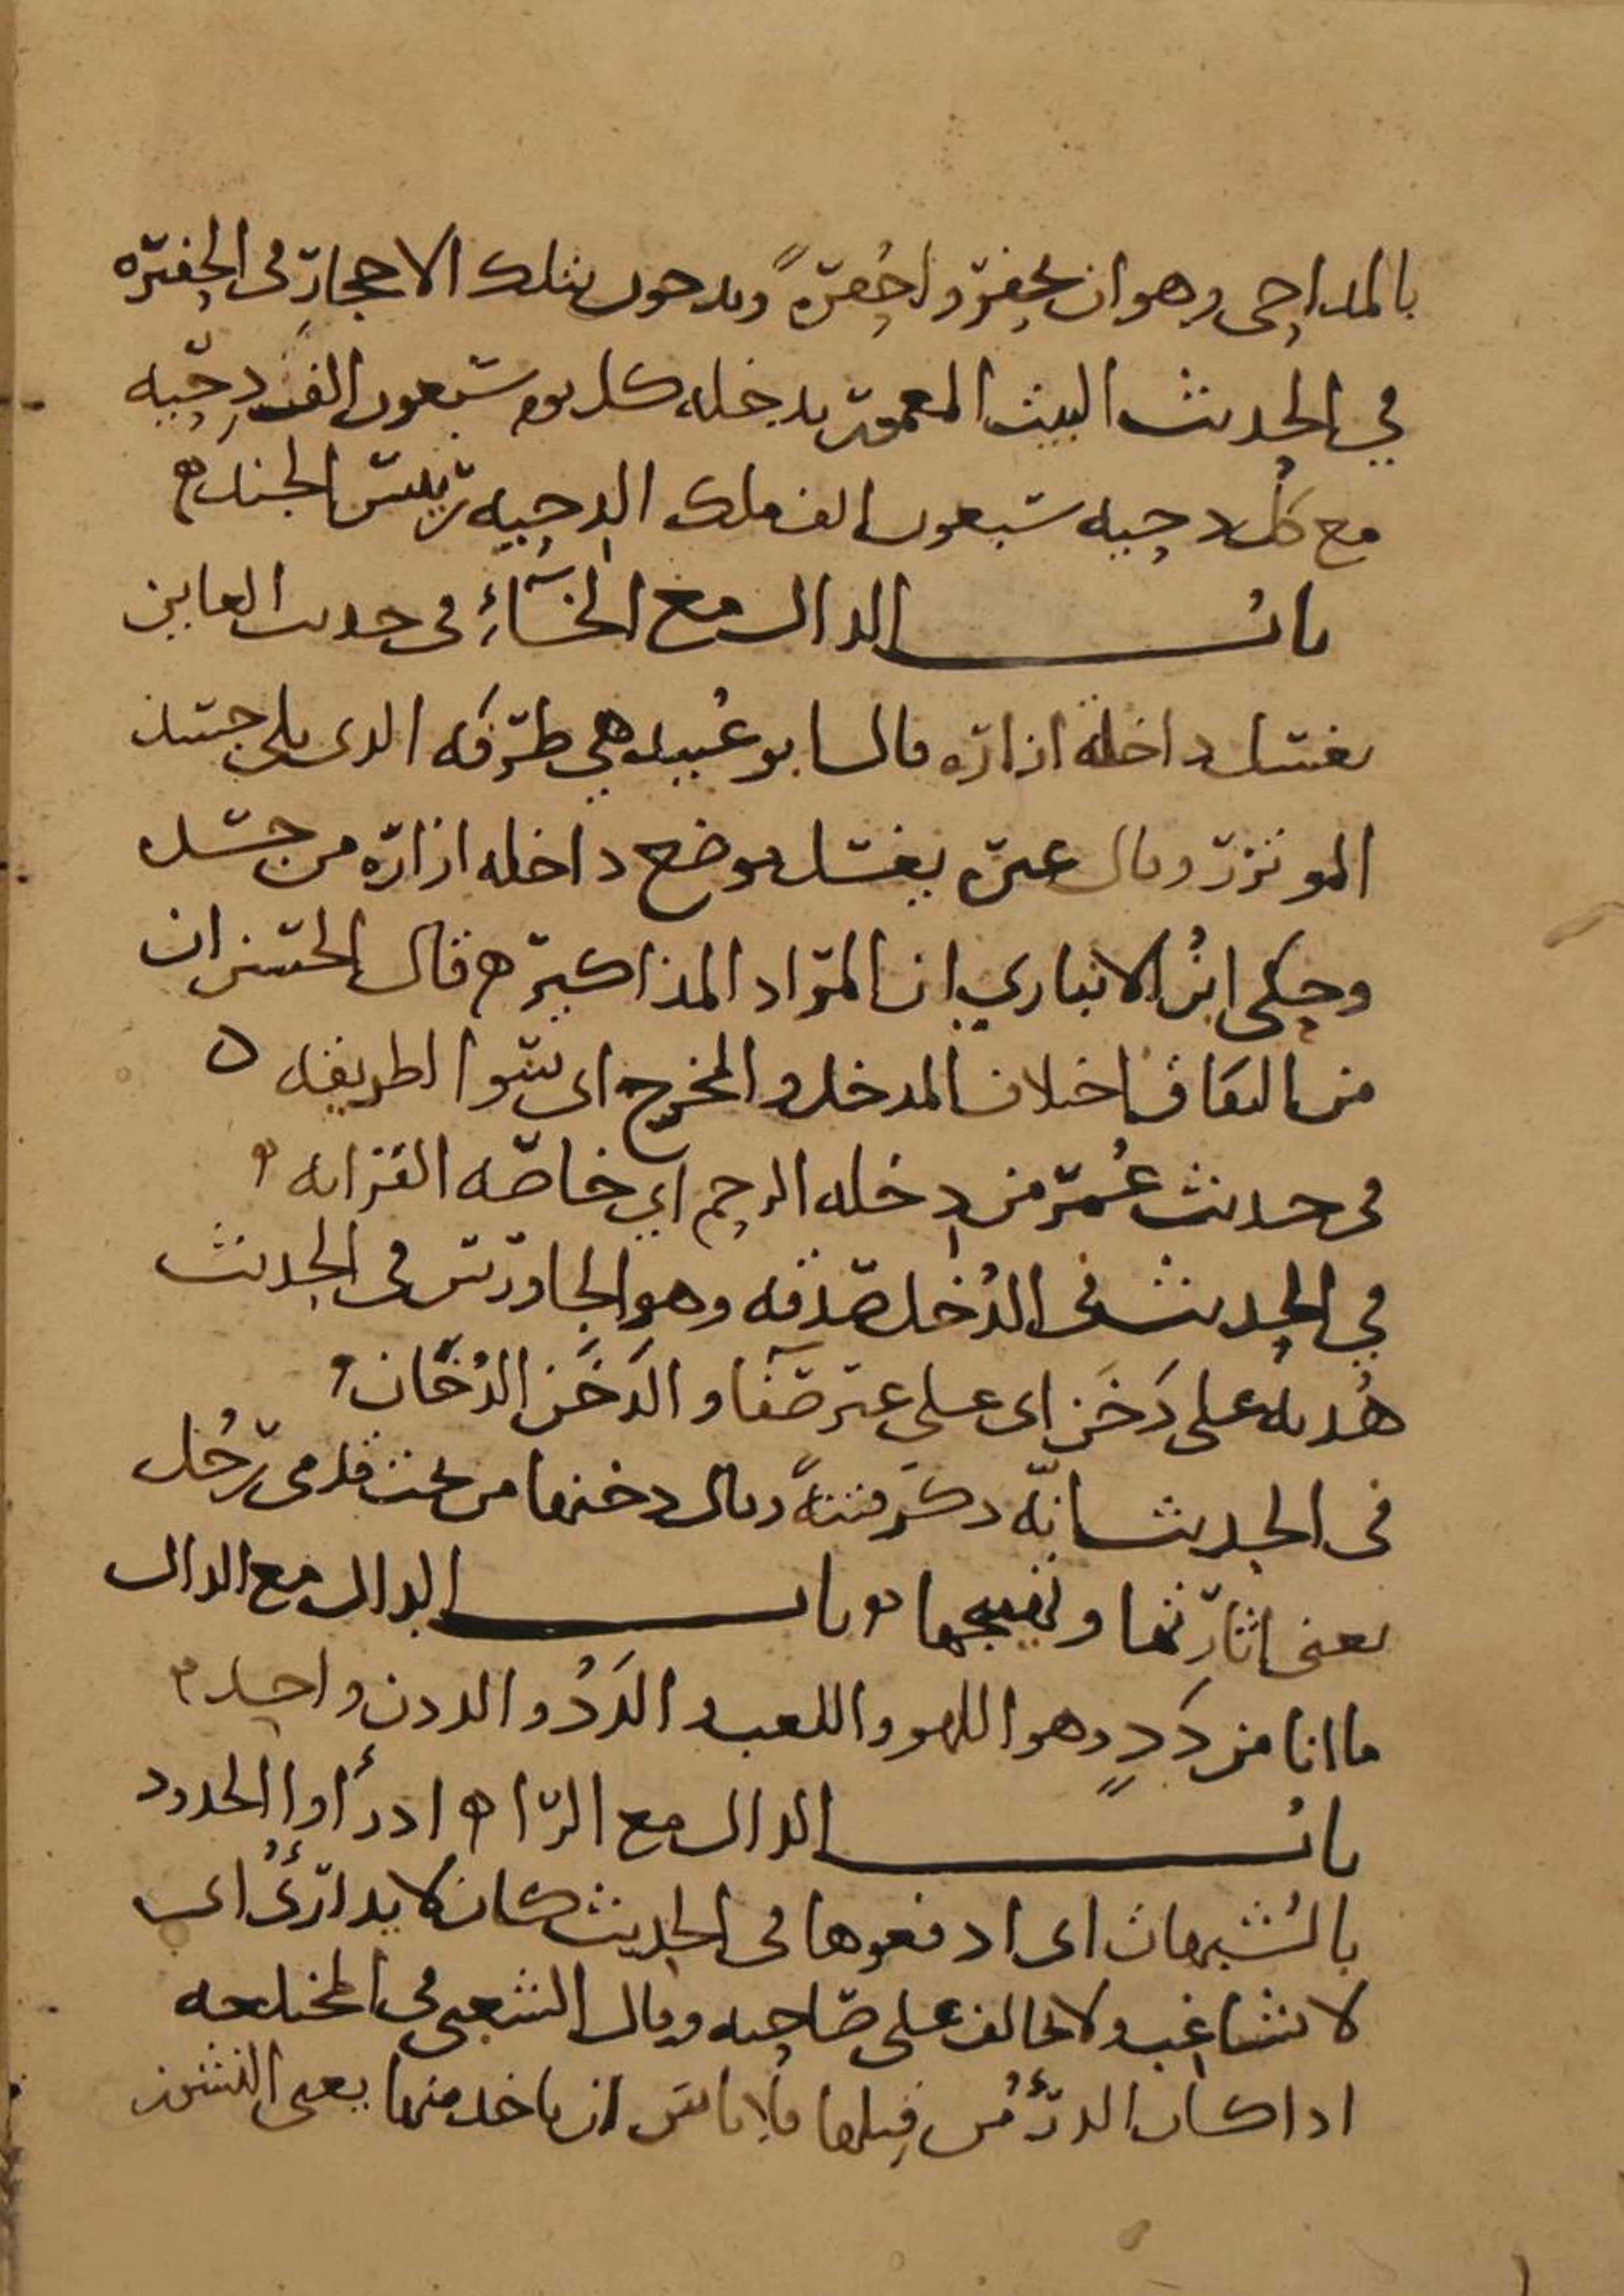 بالمداحي وهو ان يحفروا حُفرةً ويدحون بتلك الاحجار في الحفره
في الحديث البيت المعمور يدخله كل يوم سبعون الف دِحْيه
مع كل دحيه سبعون الف ملك الدحيه رييس الجند ه
باب الدال مع الخاءِ في حديث العاين
يغتسل داخلة ازاره قال ابو عُبيد هي طرفه الذي يلي جسد
الموتزر وقال غيره يغسل موضع داخله ازاره من جسده
وحكى ابنُ الانباري ان المراد المذاكير ه قال الحسن ان
من النفاق اختلاف المدخل والمخرج اي سوا الطريقه ه
في حديث عُمر من دخله الرحم اي خاصّه القرابه ه
في الحديث في الدُخل صدقه وهو الجاورس في الحديث
هُدنه على دَخَن اي على غير صفا والدَخَن الدُخَان ه
في الحديث انّه ذكر فتنةً وقال دخنها من تحت قدمي رجُل
يعني اثارتها وتهييجها ه باب الدال مع الدال
ما انا من دَدٍ وهو اللهو واللعب والدَدُ والددن واحد ه
باب الدال مع الرا ه ادرأوا الحدود
بالشُبهات اي ادفعوها في الحديث كان لا يدارئُ اي
لا يشاغب ولا يخالف على صاحبه وقال الشعبي في المختلعه
اذا كان الدرْءُ من قِبلها فلا باس ان ياخذ منها يعني النشوز